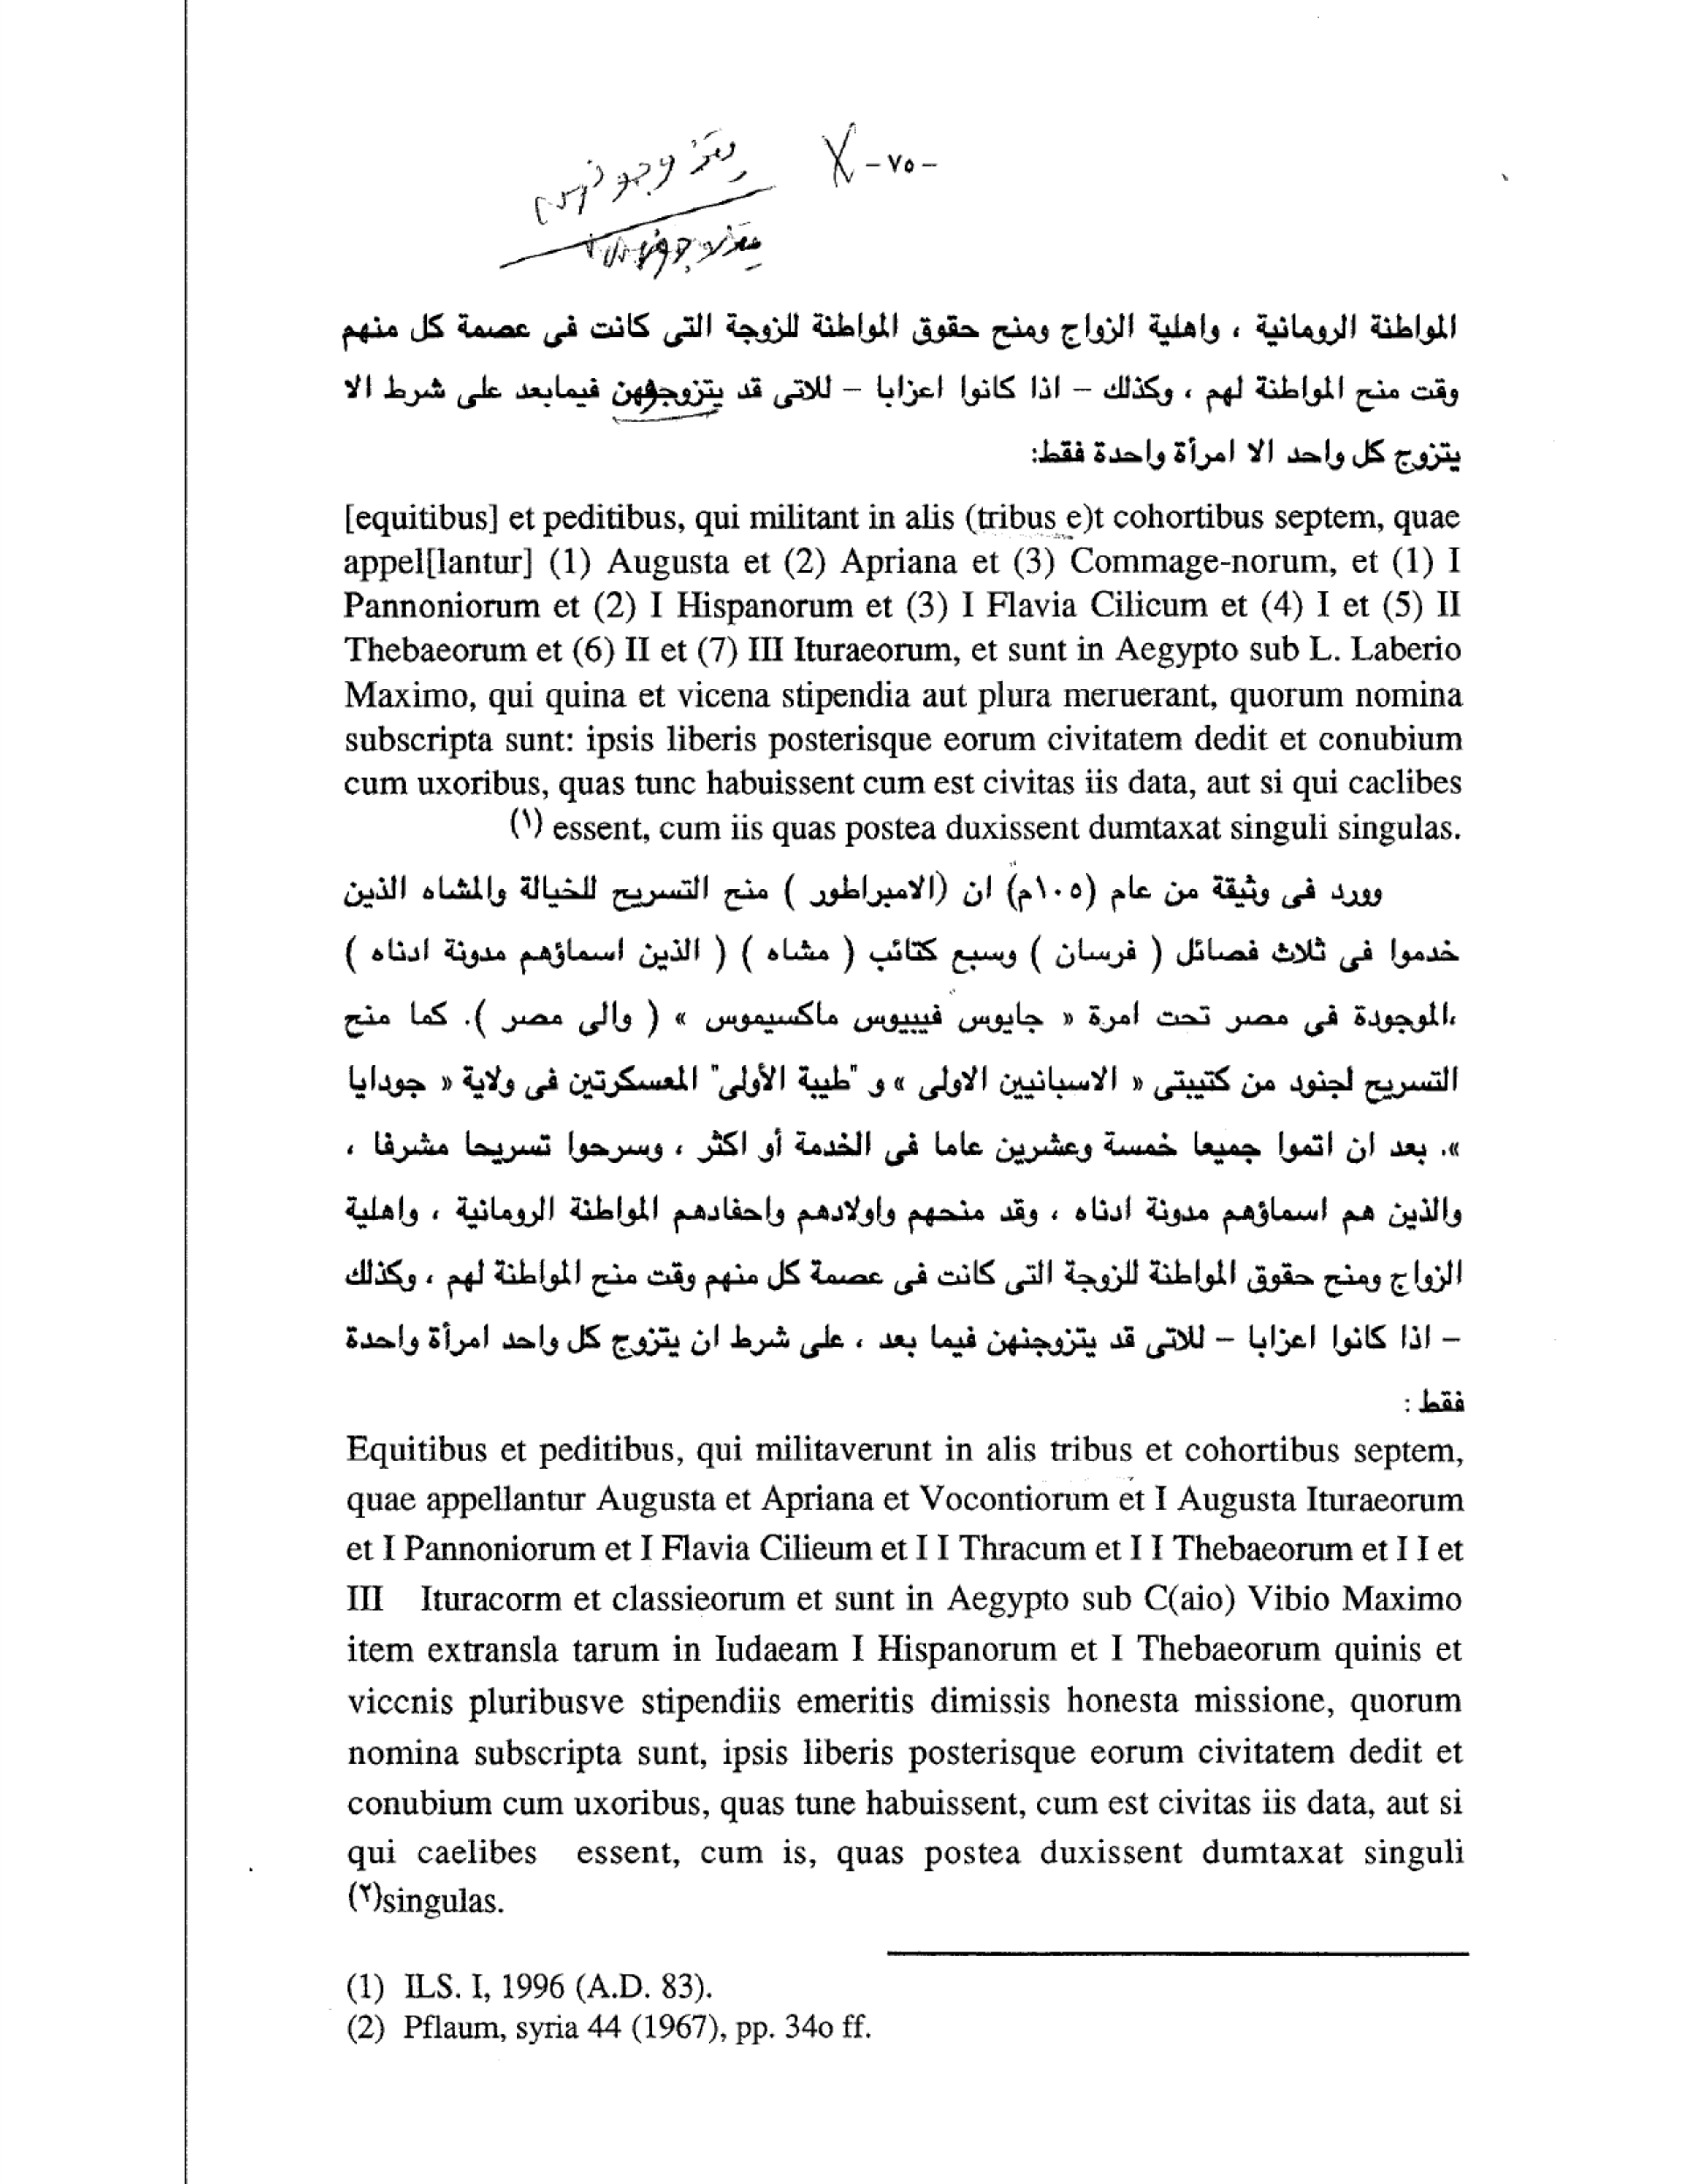 -٧٥-
المواطنة الرومانية ، واهلية الزواج ومنح حقوق المواطنة للزوجة التى كانت فى عصمة كل منهم
وقت منح المواطنة لهم ، وكذلك – اذا كانوا اعزابا – للاتى قد فيمابعد على شرط الا
يتزوج كل واحد الا امرأة واحدة فقط:
[equitibus] et peditibus, qui militant in alis (tribus e)t cohortibus septem, quae
appel[lantur] (1) Augusta et (2) Apriana et (3) Commage-norum, et (1) I
Pannoniorum et (2) I Hispanorum et (3) I Flavia Cilicum et (4) I et (5) II
Thebaeorum et (6) II et (7) III Ituraeorum, et sunt in Aegypto sub L. Laberio
Maximo, qui quina et vicena stipendia aut plura meruerant, quorum nomina
subscripta sunt: ipsis liberis posterisque eorum civitatem dedit et conubium
cum uxoribus, quas tunc habuissent cum est civitas iis data, aut si qui caclibes
(١) essent, cum iis quas postea duxissent dumtaxat singuli singulas.
وورد فى وثيقة من عام (١٠٥م) ان (الامبراطور ) منح التسريح للخيالة والمشاه الذين
خدموا فى ثلاث فصائل ( فرسان ) وسبع كتائب ( مشاه ) ( الذين اسماؤهم مدونة ادناه )
،الموجودة فى مصر تحت امرة « جايوس فيبيوس ماكسيموس » ( والى مصر ). كما منح
التسريح لجنود من كتيبتى « الاسبانيين الاولى » و "طيبة الأولى" المعسكرتين فى ولاية « جودايا
». بعد ان اتموا جميعا خمسة وعشرين عاما فى الخدمة أو اكثر ، وسرحوا تسريحا مشرفا ،
والذين هم اسماؤهم مدونة ادناه ، وقد منحهم واولادهم واحفادهم المواطنة الرومانية ، واهلية
الزواج ومنح حقوق المواطنة للزوجة التى كانت فى عصمة كل منهم وقت منح المواطنة لهم ، وكذلك
– اذا كانوا اعزابا – للاتى قد يتزوجنهن فيما بعد ، على شرط ان يتزوج كل واحد امرأة واحدة
فقط :
Equitibus et peditibus, qui militaverunt in alis tribus et cohortibus septem,
quae appellantur Augusta et Apriana et Vocontiorum et I Augusta Ituraeorum
et I Pannoniorum et I Flavia Cilieum et I I Thracum et I I Thebaeorum et I I et
III Ituracorm et classieorum et sunt in Aegypto sub C(aio) Vibio Maximo
item extransla tarum in Iudaeam I Hispanorum et I Thebaeorum quinis et
viccnis pluribusve stipendiis emeritis dimissis honesta missione, quorum
nomina subscripta sunt, ipsis liberis posterisque eorum civitatem dedit et
conubium cum uxoribus, quas tune habuissent, cum est civitas iis data, aut si
qui caelibes essent, cum is, quas postea duxissent dumtaxat singuli
(٢)singulas.
(1) ILS. I, 1996 (A.D. 83).
(2) Pflaum, syria 44 (1967), pp. 34o ff.